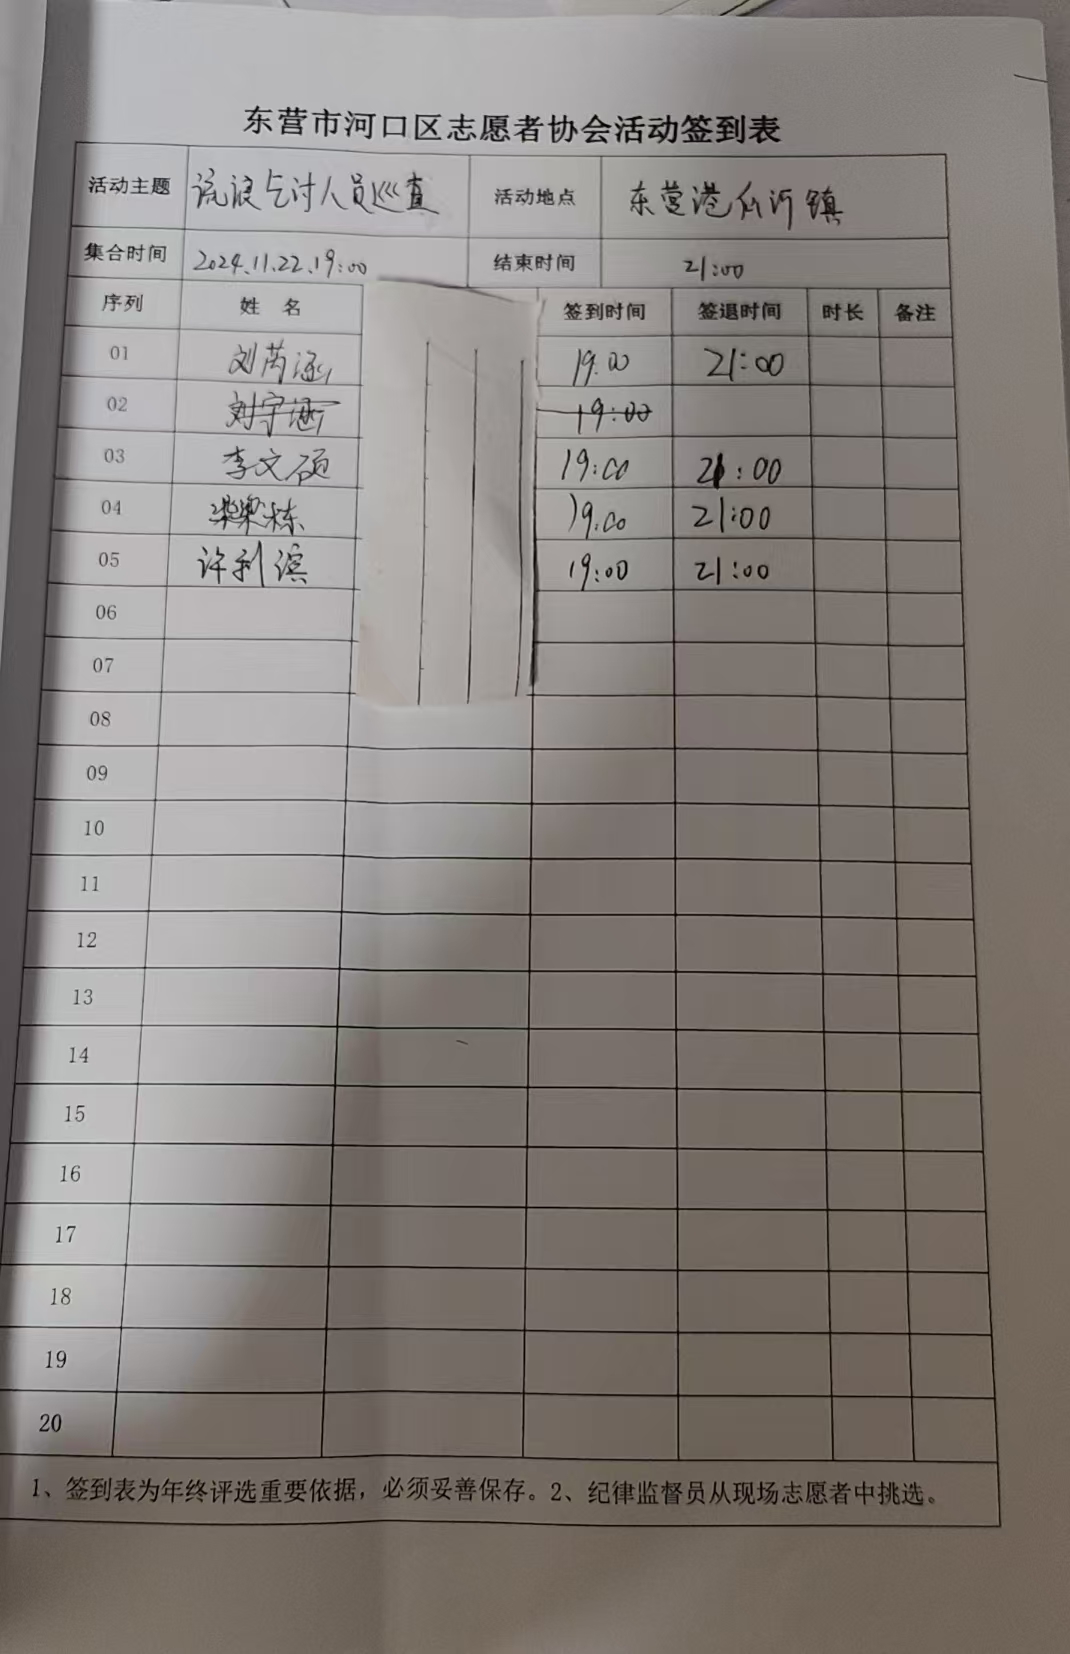 东营市河口区志愿者协会活动签到表
活动主题 流浪乞讨人员巡查 活动地点 东营港 镇
集合时间 2024.11.22.19:00 结束时间 21:00
序列 姓名 签到时间 签退时间 时长 备注
01 刘芮涵 19:00 21:00
02 刘宇涵 19:00
03 李文硕 19:00 21:00
04 梁栋 19:00 21:00
05 许利滨 19:00 21:00
06
07
08
09
10
11
12
13
14
15
16
17
18
19
20
1、签到表为年终评选重要依据，必须妥善保存。2、纪律监督员从现场志愿者中挑选。